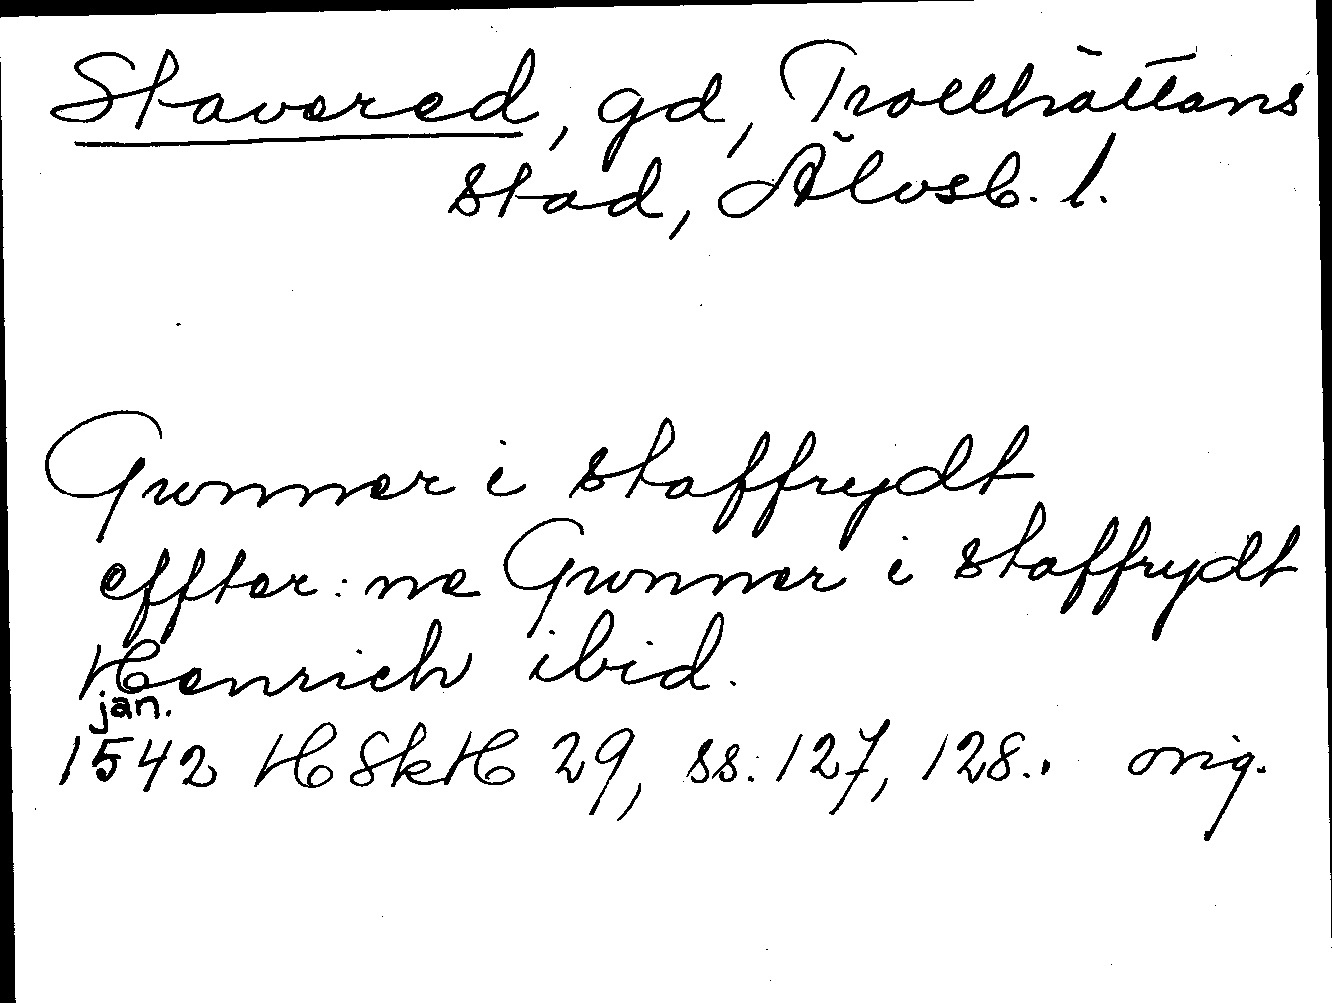 Stavered, gd, Trollhättans
stad, Älvsb. l.
Gunner i staffrydt
effter: ne Gunner i staffrydt
Henrich ibid.
jan.
1542 HSkH 29, ss. 127, 128. orig.